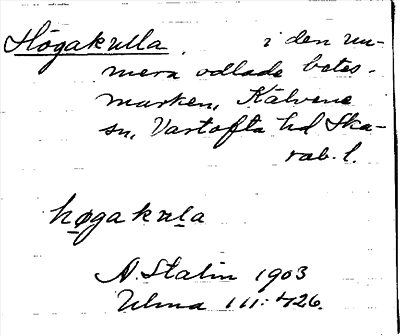 Högakulla. i den nu-
mera odlade betes-
marken, Kälvene
sn, Vartofta hd Ska-
rab. l.
høgakula
A. Stalin 1903
Ulma 111:426.